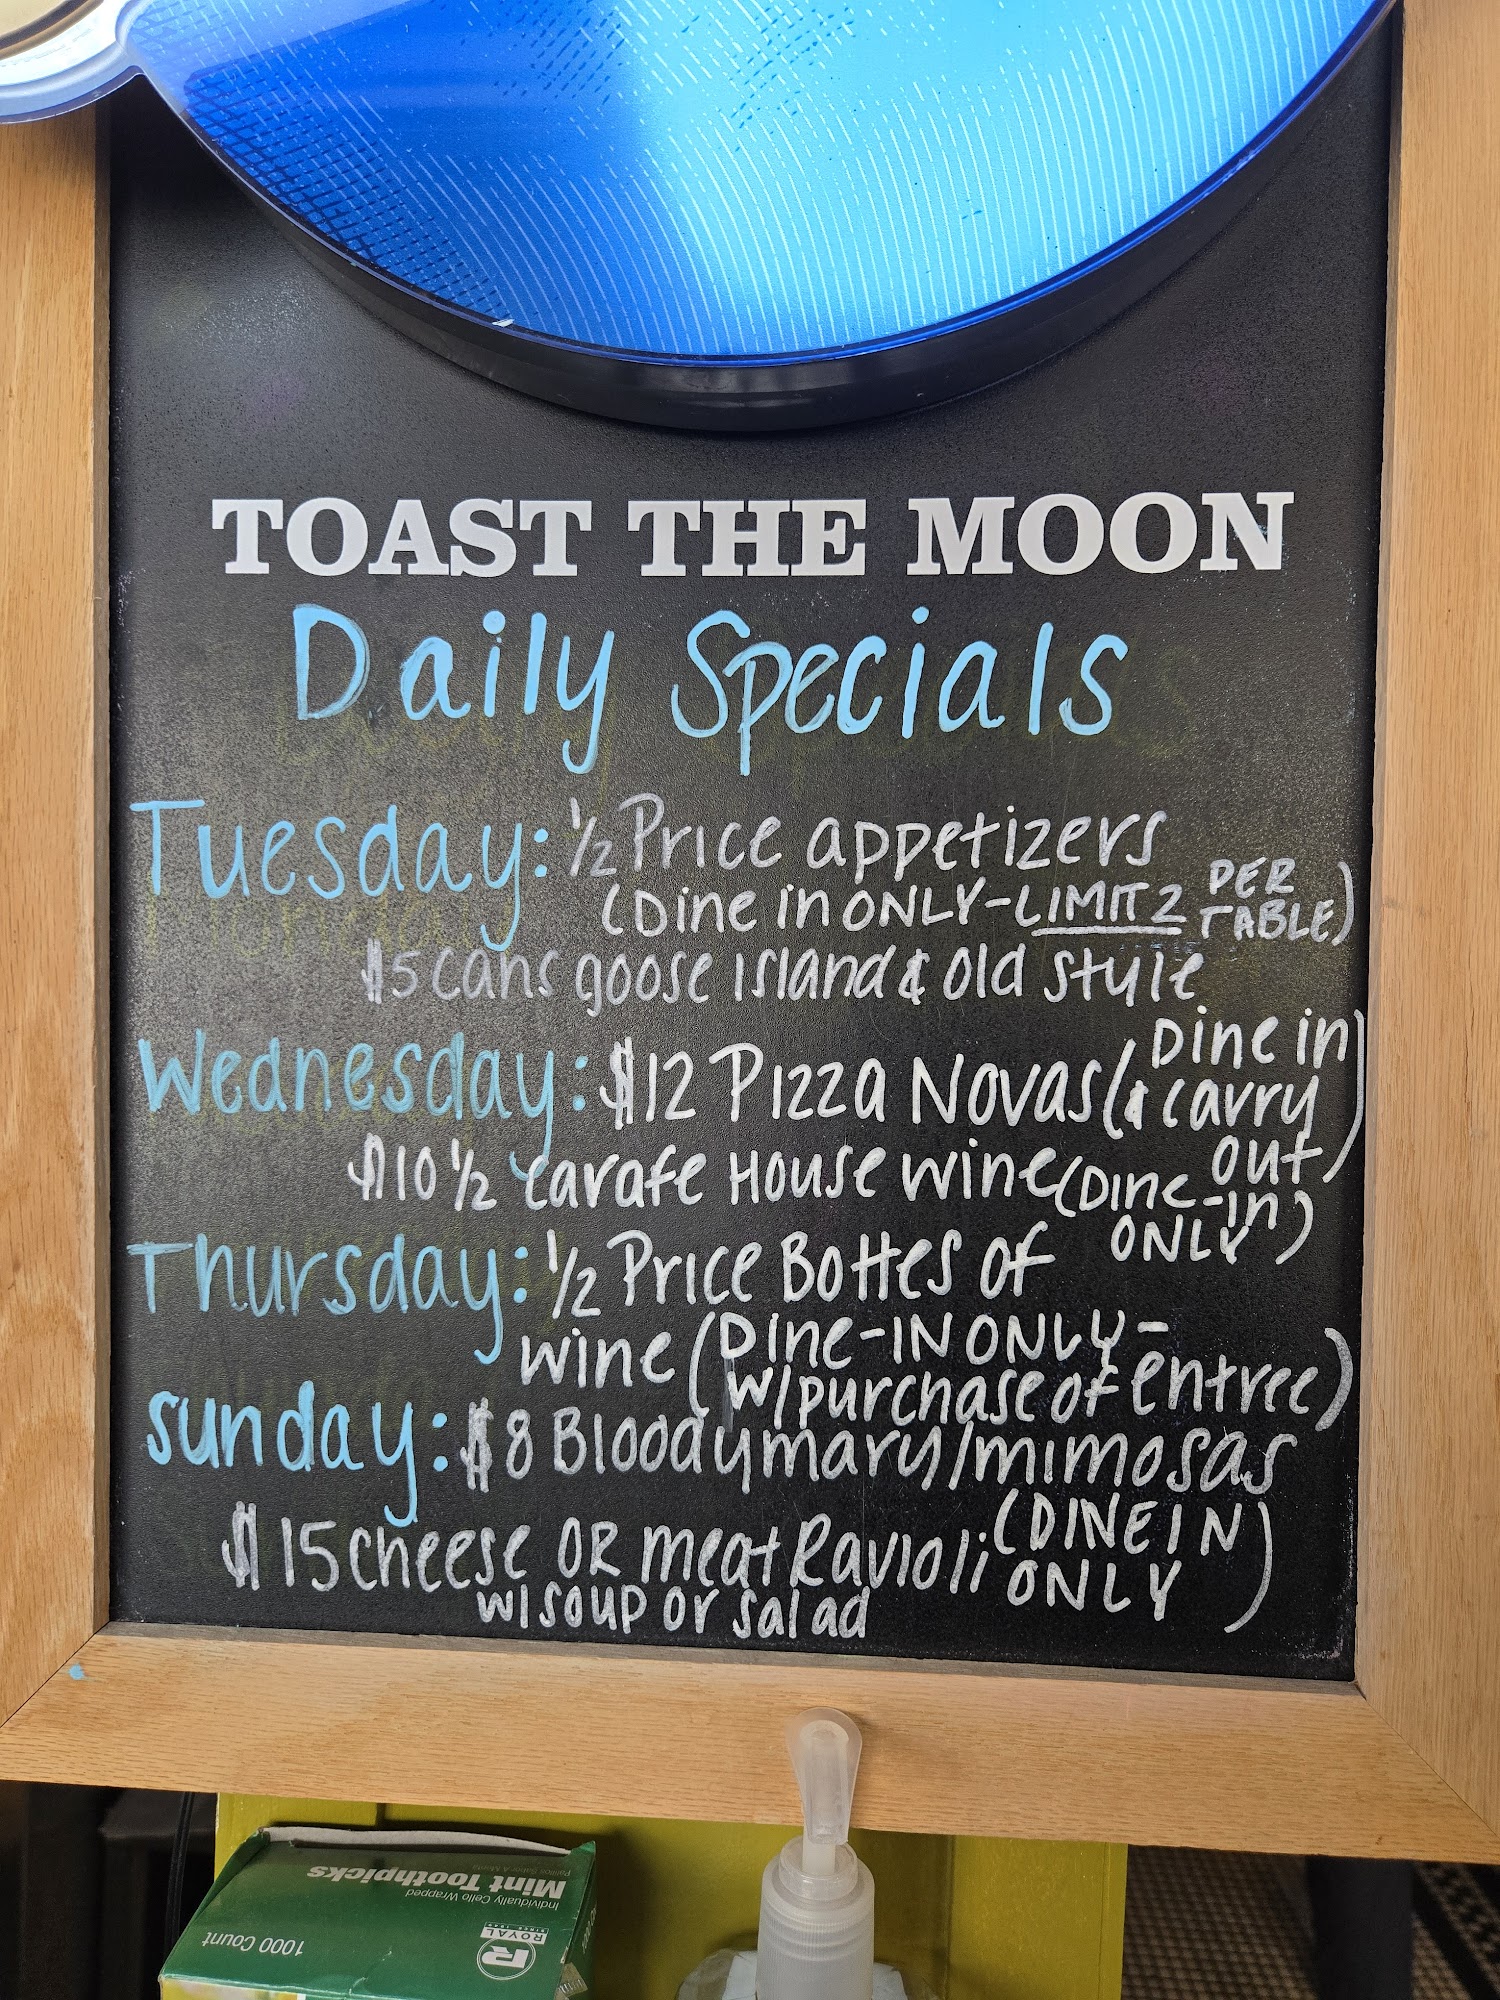 TOAST THE MOON
Daily Specials
Tuesday: 1/2 Price appetizers
(Dine in ONLY-LIMIT 2 PER TABLE)
$5 cans goose island & old style
Wednesday: $12 Pizza Novas (Dine in & carry out)
$10 1/2 carafe House wine (Dine-in ONLY)
Thursday: 1/2 Price Bottles of
wine (Dine-IN ONLY-
w/purchase of entree)
Sunday: $8 Bloodymary/mimosas
$15 cheese OR meat Ravioli (DINE IN ONLY)
w/ soup or salad
Mint Toothpicks
Individually Cello Wrapped
R
ROYAL
1000 Count